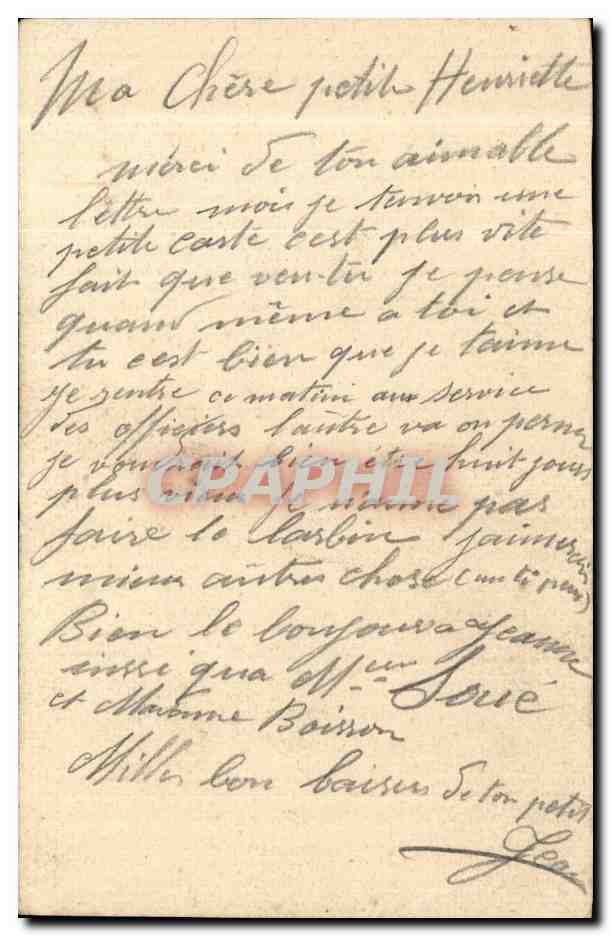 Ma Chère petite Henriette
merci de ton aimable
lettre moi je tenvoi une
petite carte cest plus vite
fait que veu-tu je pense
quand même a toi et
tu cest bien que je taime
Je rentre ce matin au service
des officiers lautre va on perm
je voudrait bien être huit jours
plus vieux je naime pas
faire le larbin jaimerais
mieux autres chose (un ti peu)
Bien le bonjour a Jeanne
inssi qua Mr Soué
et Madame Boisson
Mille bon baisers de ton petit
Jean
CPAPHIL